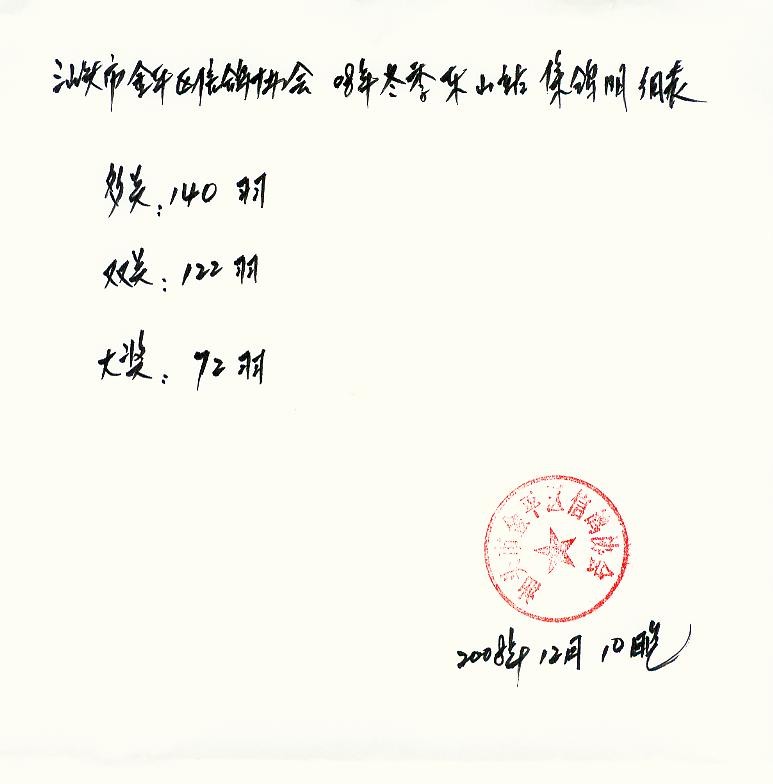 汕头市金平区信鸽协会 08年冬季乐山站集鸽明细表
多关:140 羽
双关:122 羽
大奖:72 羽
汕头市金平区信鸽协会
2008年12月10晚